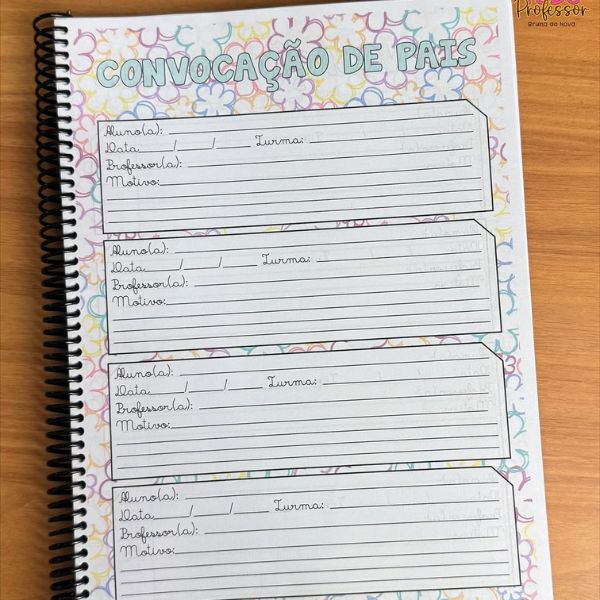 Professor
Bruna da Nova
CONVOCAÇÃO DE PAIS
Aluno(a):
Data / / Turma:
Professor(a):
Motivo:
Aluno(a):
Data / / Turma:
Professor(a):
Motivo:
Aluno(a):
Data / / Turma:
Professor(a):
Motivo:
Aluno(a):
Data / / Turma:
Professor(a):
Motivo: